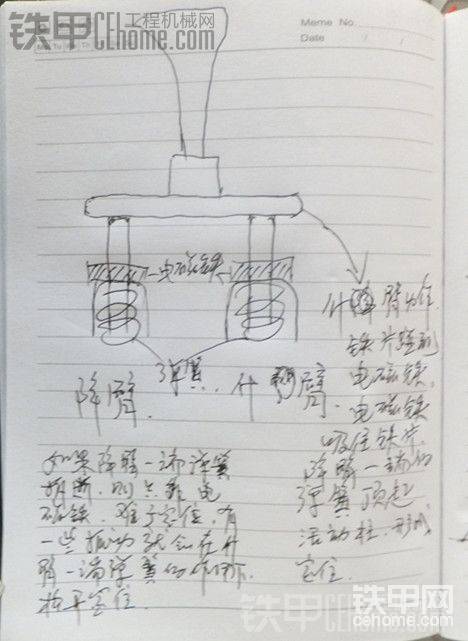 铁甲 工程机械网
CEhome.com
Meme No.
Date
Mo Tu
电磁铁
弹簧.
降臂.
升 臂
升 臂为位
铁片碰到
电磁铁.
电磁铁
吸住铁片.
降臂一端的
弹簧顶起
活动柱.形成
定位.
如果降臂一端弹簧
折断.则只靠电
磁铁.难于定位.有
一些振动就会在升
臂一端弹簧的作用下.
扳平定位.
铁甲
CEhome.com
铁甲网
cehome.com